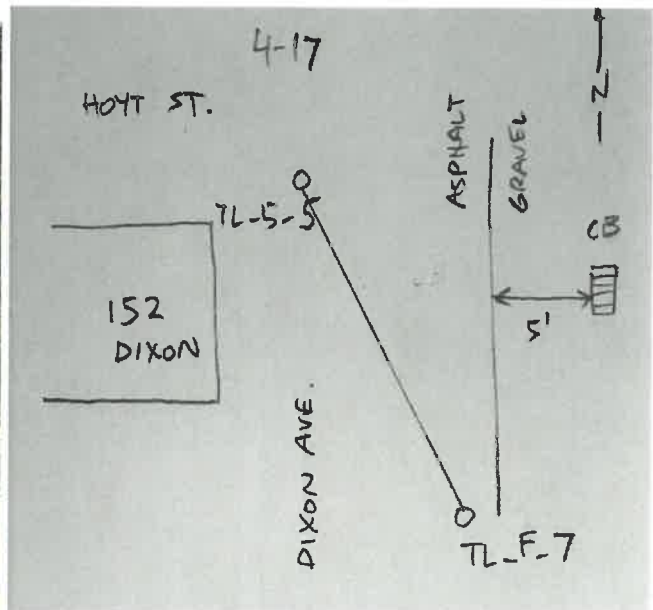 4-17
HOYT ST.
ASPHALT
GRAVEL
N
CB
TL-5-5
152
DIXON
5'
DIXON AVE.
TL-F-7